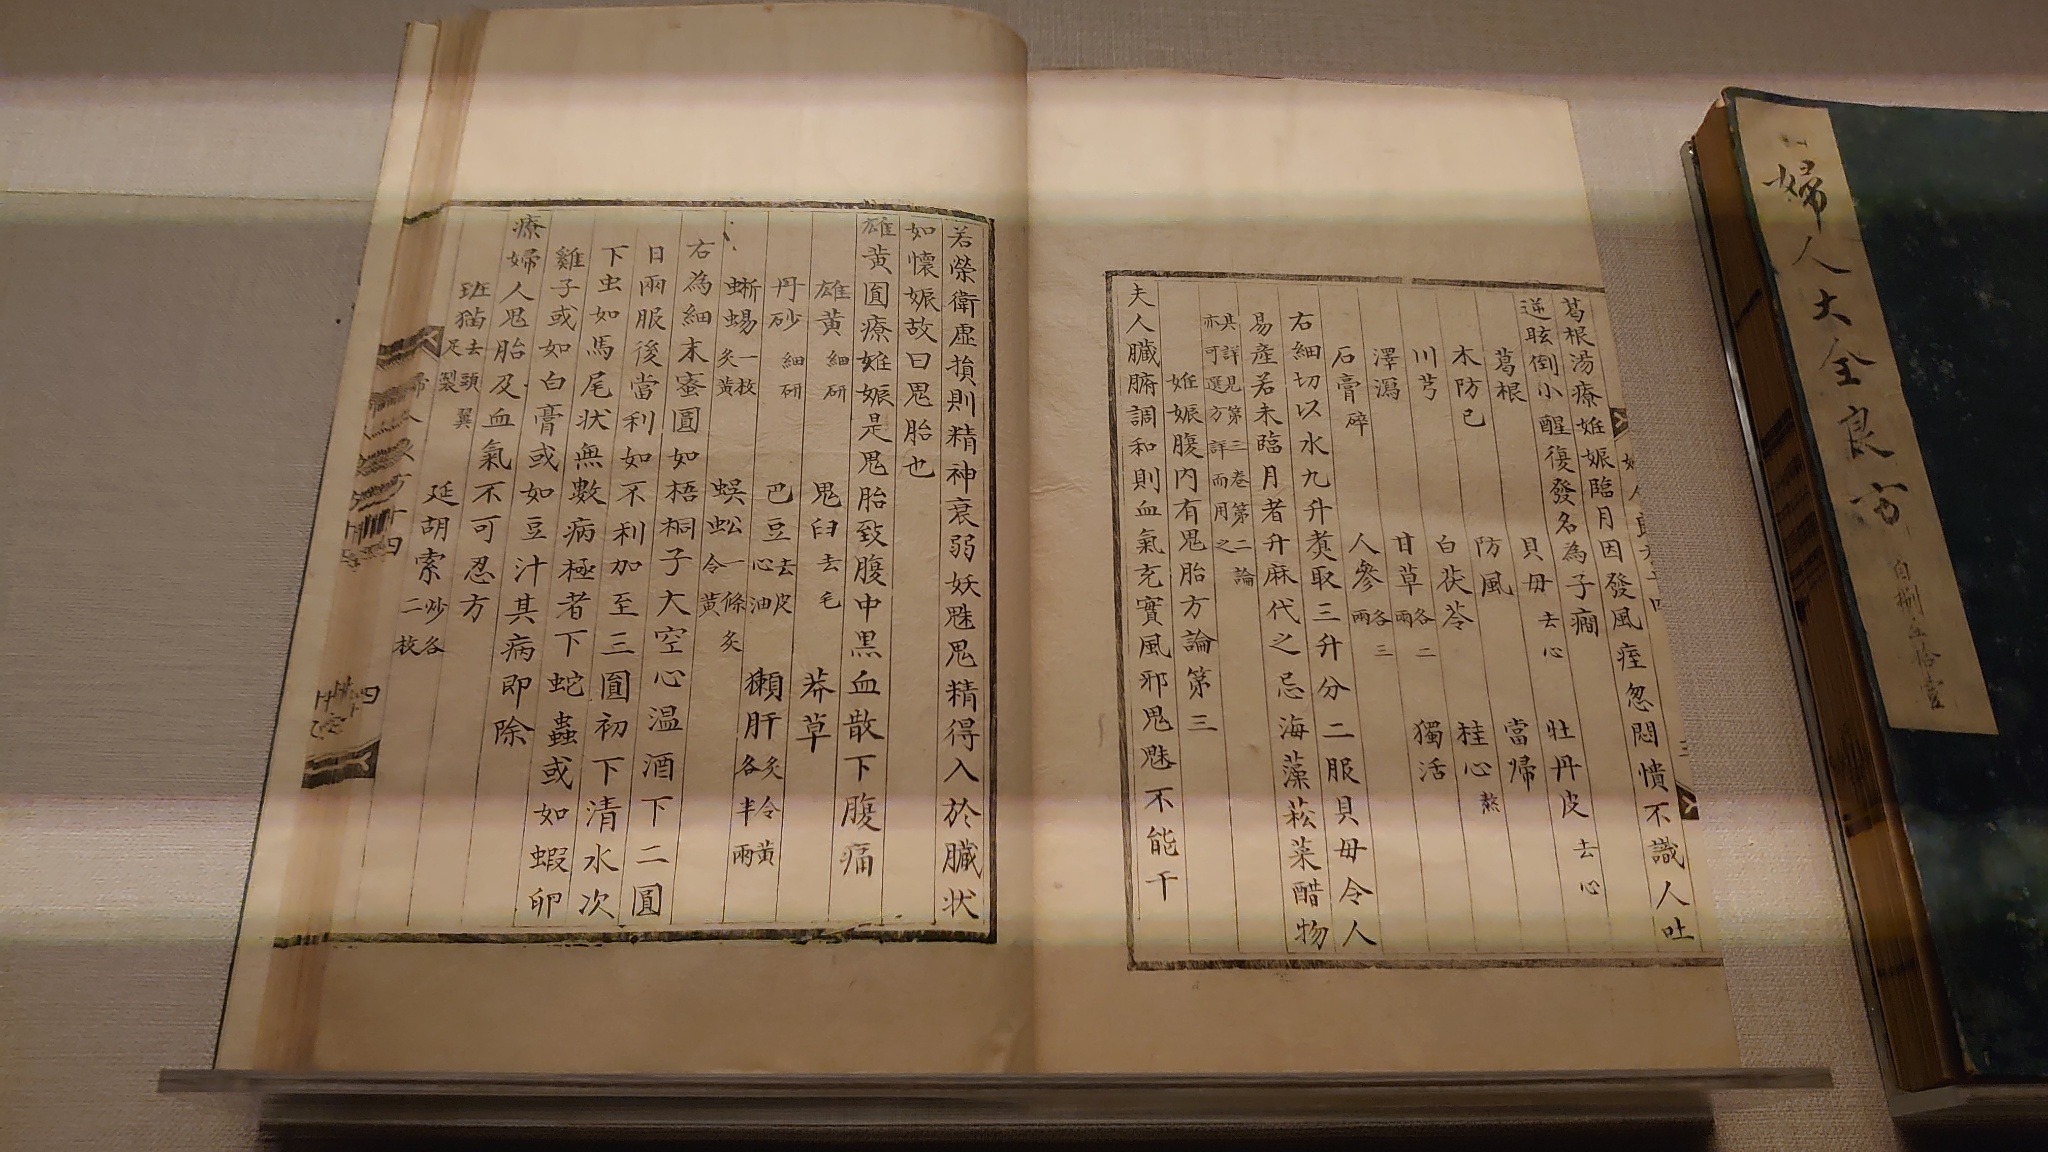 葛根湯療姙娠臨月因發風痓忽悶憒不識人吐
逆眩倒小醒復發名為子癎
貝母去心 牡丹皮去心
葛根 防風 當歸
木防已 白茯苓 桂心熬
川芎 甘草各二兩 獨活
澤瀉 人參各三兩
石膏碎
右細切以水九升煑取三升分二服貝母令人
易產若未臨月者升麻代之忌海藻菘菜醋物
其詳見第三卷第二論
亦可選方詳而用之
姙娠腹内有鬼胎方論第三
夫人臟腑調和則血氣充實風邪鬼魅不能干
若榮衛虛損則精神衰弱妖魅鬼精得入於臟状
如懷娠故曰鬼胎也
雄黄圓療姙娠是鬼胎致腹中黒血散下腹痛
雄黄細研 鬼臼去毛 莽草
丹砂細研 巴豆去皮心油 獺肝炙令黄各半兩
蜥蜴一枚炙黄 蜈蚣一條炙令黄
右為細末蜜圓如梧桐子大空心温酒下二圓
日兩服後當利如不利加至三圓初下清水次
下虫如馬尾状無數病極者下蛇蟲或如蝦卵
雞子或如白膏或如豆汁其病即除
療婦人鬼胎及血氣不可忍方
班猫去頭翼足製 延胡索炒各二枚
婦人大全良方